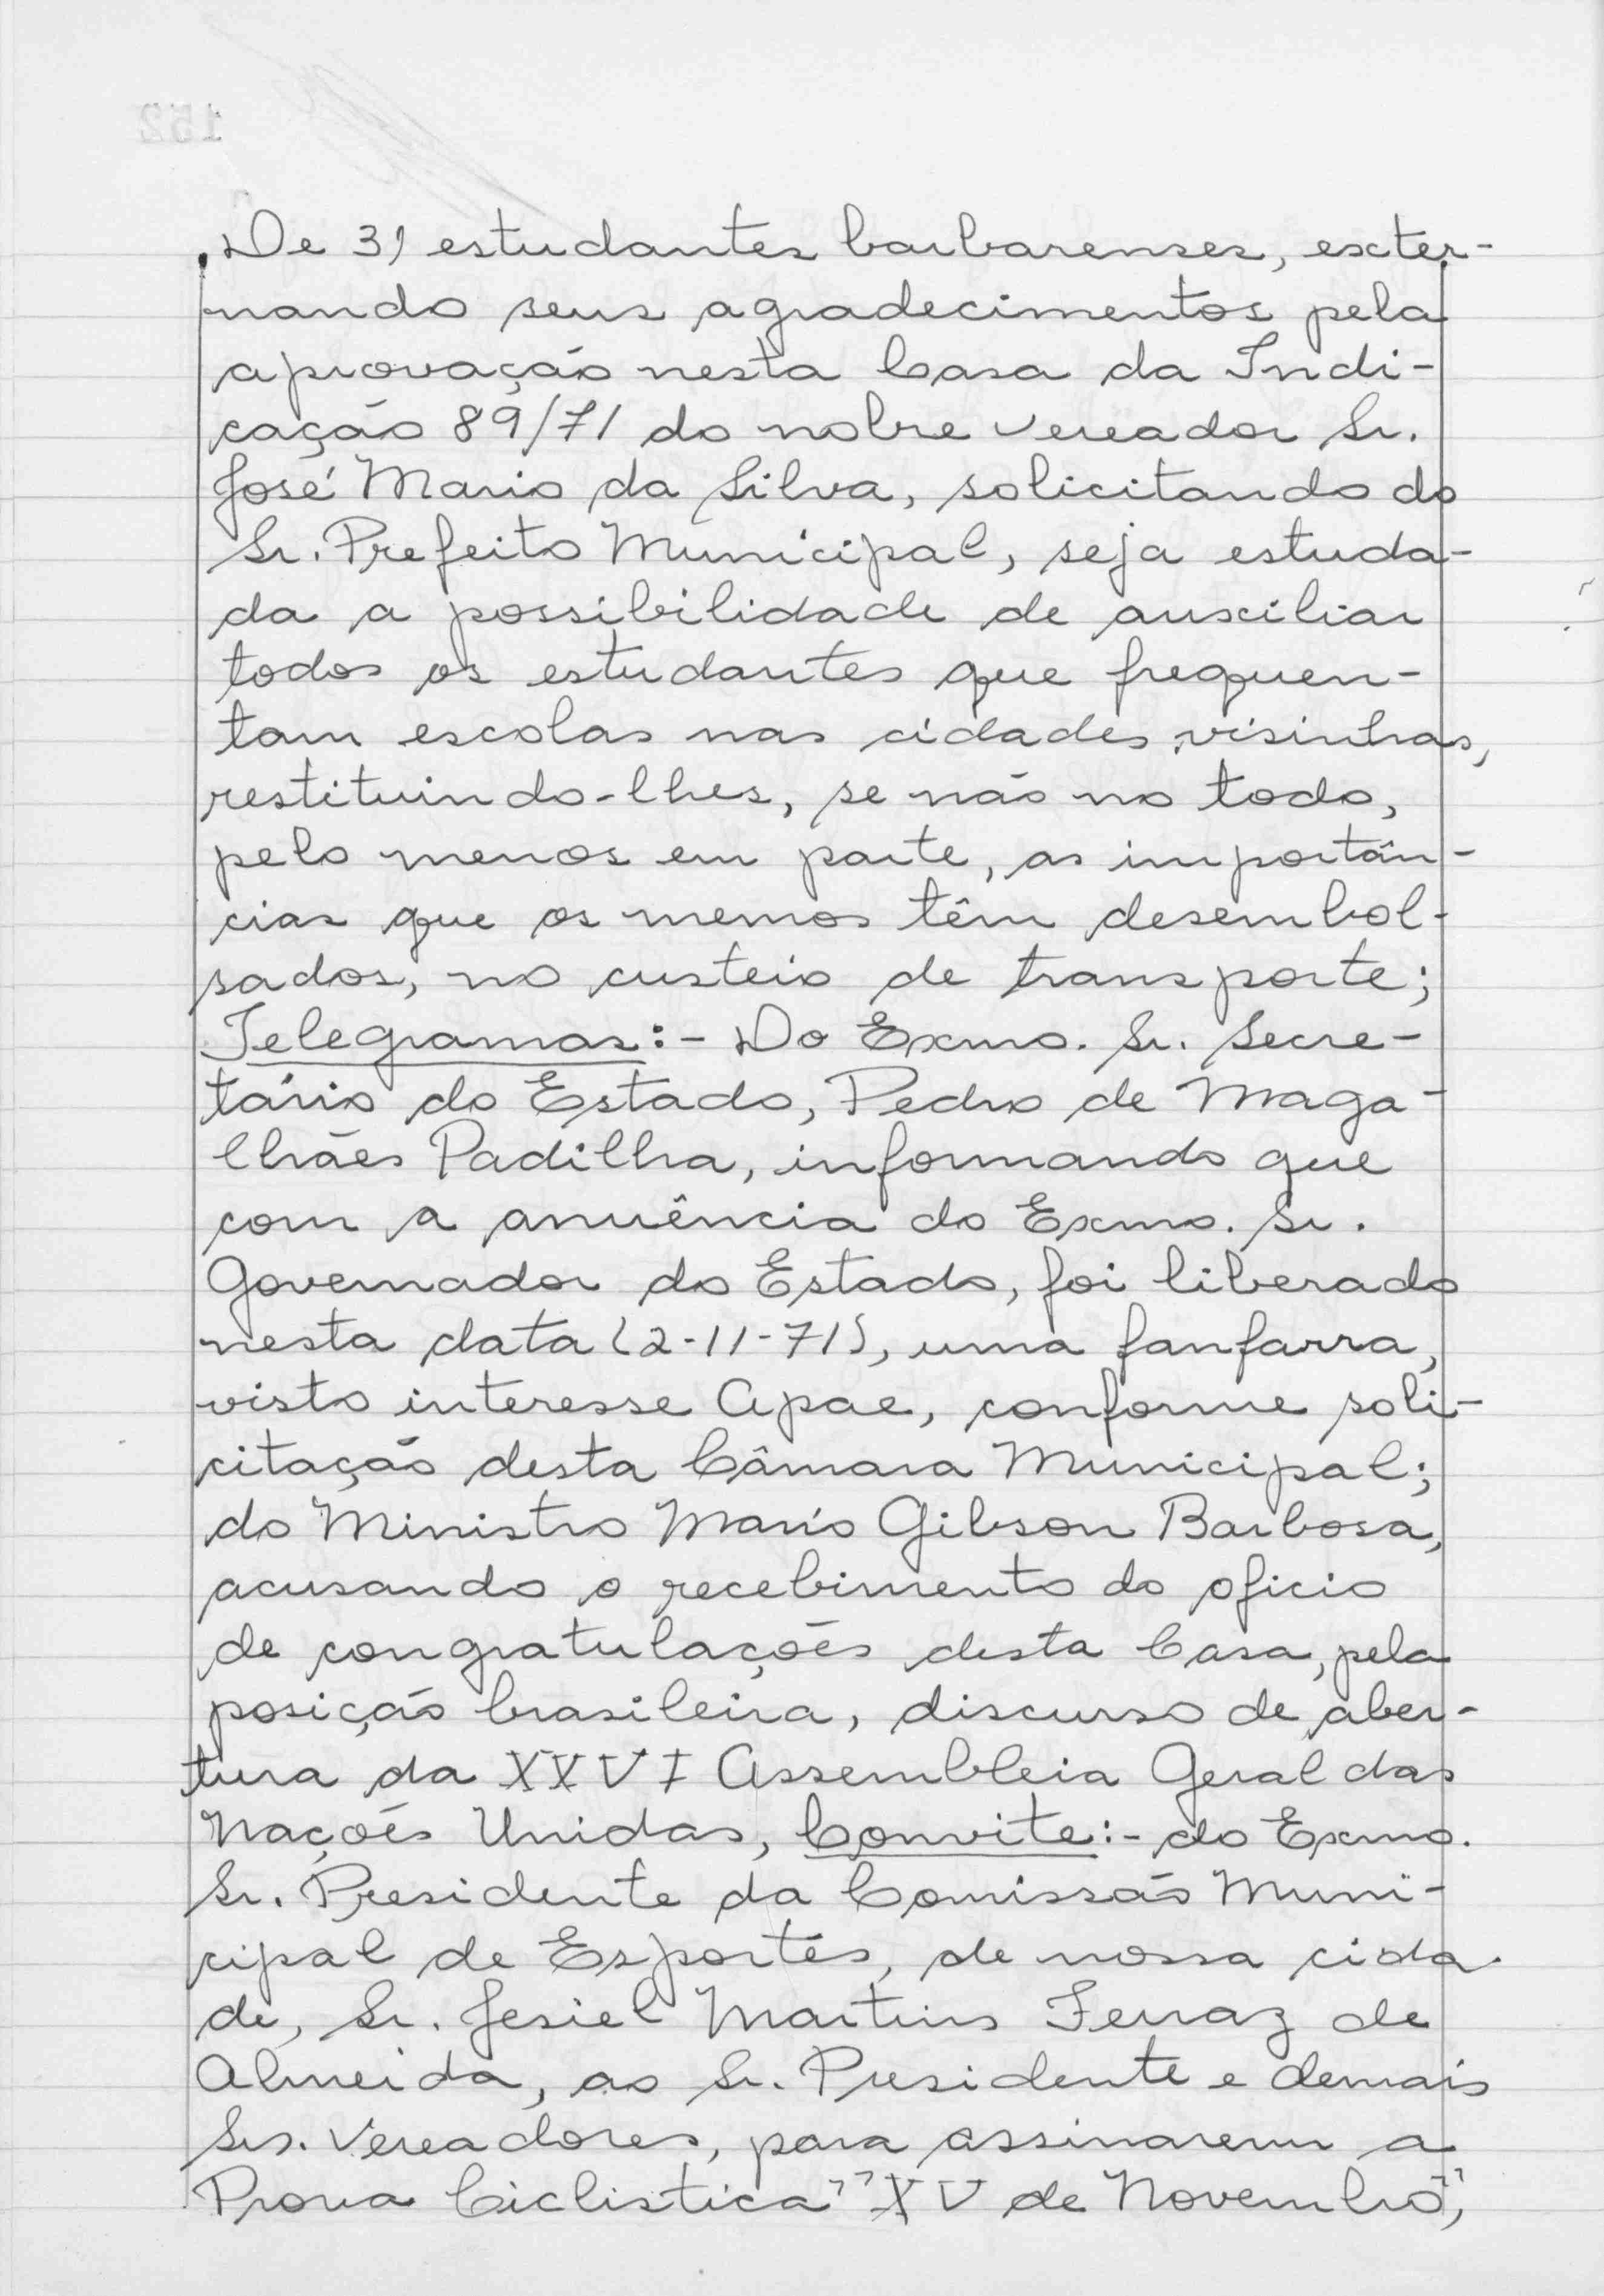 De 31 estudantes barbarenses, exter-
nando seus agradecimentos pela
aprovação nesta Casa da Indi-
cação 89/71 do nobre vereador Sr.
José Maria da Silva, solicitando do
Sr. Prefeito Municipal, seja estuda-
da a possibilidade de auxiliar
todos os estudantes que frequen-
tam escolas nas cidades visinhas,
restituindo-lhes, se não no todo,
pelo menos em parte, as importân-
cias que os memos têm desembol-
sados, no custeio de transporte;
Telegramas:- Do Exmo. Sr. Secre-
tário do Estado, Pedro de Maga-
lhães Padilha, informando que
com a anuência do Exmo. Sr.
Governador do Estado, foi liberado
nesta data (2-11-71), uma fanfarra,
visto interesse Apae, conforme soli-
citação desta Câmara Municipal;
do Ministro Mario Gibson Barbosa,
acusando o recebimento do oficio
de congratulações desta Casa, pela
posição brasileira, discurso de aber-
tura da XXVI Assembleia Geral das
Nações Unidas, Convite:- do Exmo.
Sr. Presidente da Comissão Muni-
cipal de Esportes, de nossa cida-
de, Sr. Jesiel Martins Ferraz de
Almeida, ao Sr. Presidente e demais
Srs. Vereadores, para assinarem a
Prova Ciclistica "XV de Novembro",
152